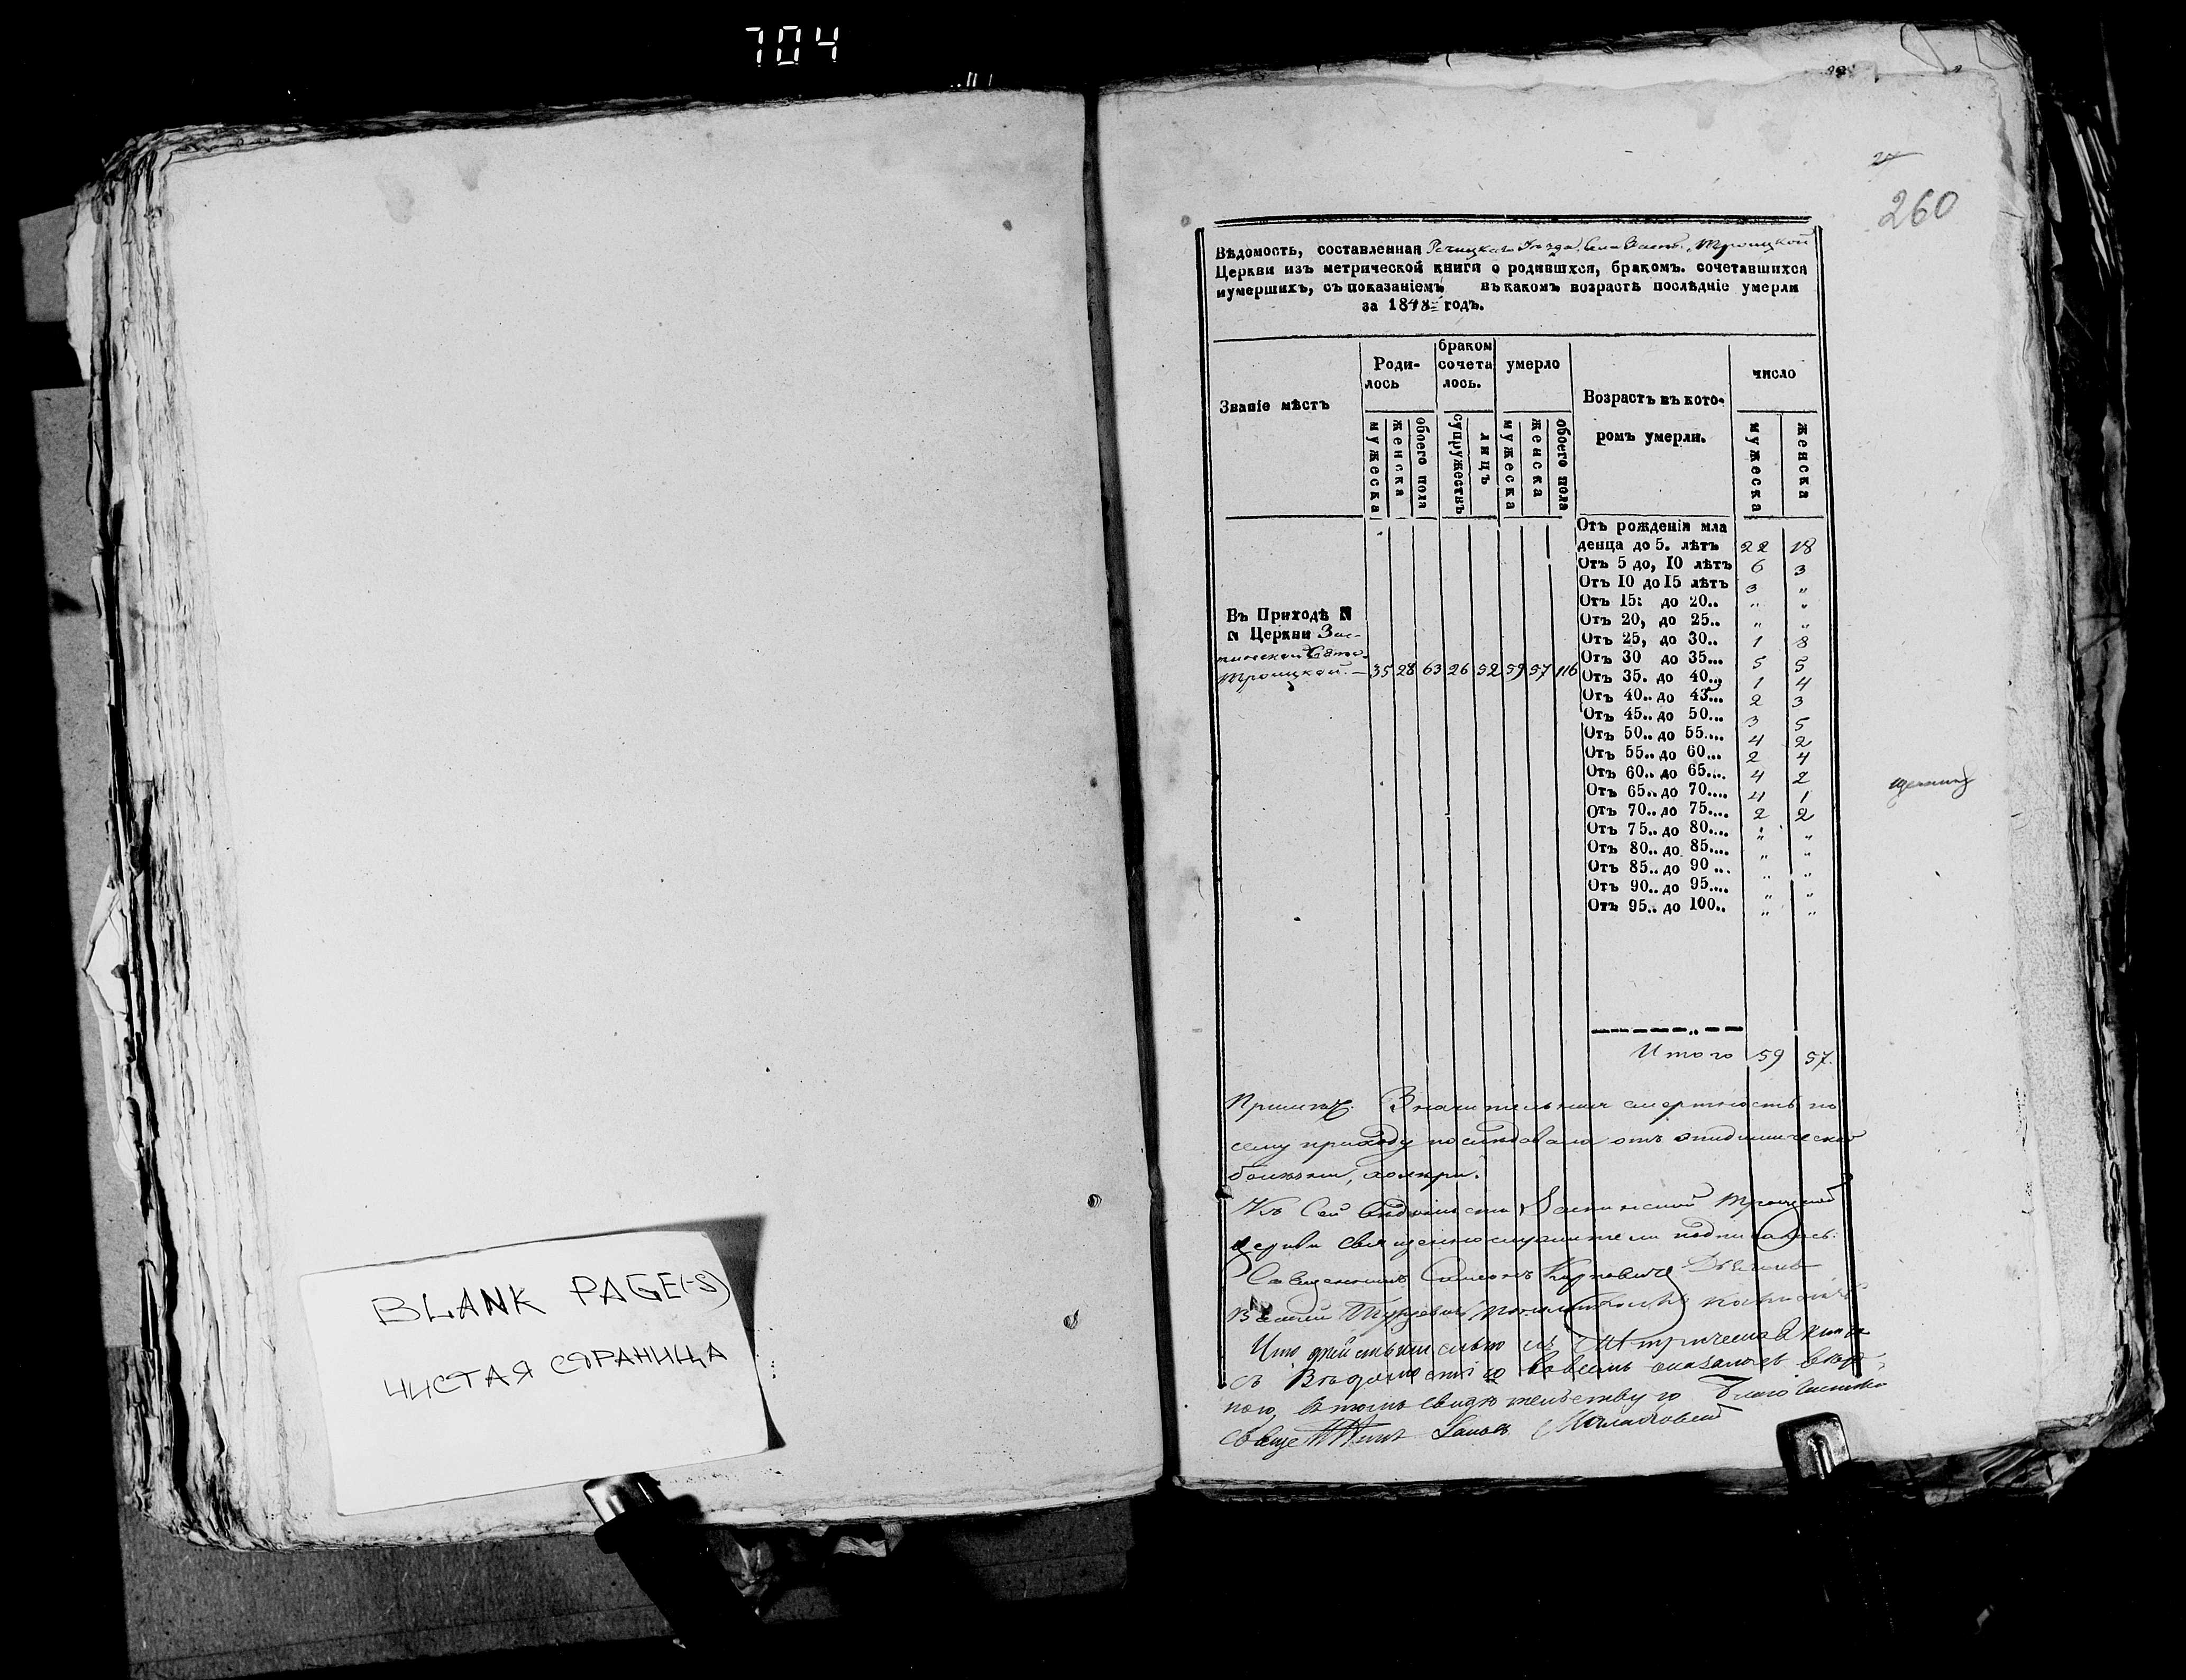 704
BLANK PAGE(-S)
ЧИСТАЯ СТРАНИЦА
260
Вѣдомость, составленная Речицкаго Уѣзда Троицкой
Церкви изъ метрической книги о родившхся, бракомъ. сочетавшихся
иумершихъ, съ показаніемъ въ какомъ возрастѣ послѣдніе умерли
за 1848 годъ.
Званіе мѣстъ
Роди-
лось
браком
сочета
лось.
умерло
Возрастъ въ кото-
ромъ умерли.
число
мужеска
женска
обоего пола
супружествъ
лицъ
мужеска
женска
обоего пола
мужеска
женска
Въ Приходѣ N
N Церкви Зас-
пинской Свято-
Троицкой. — 35 28 63 26 52 59 57 116
Отъ рожденія мла
денца до 5. лѣтъ 22 18
Отъ 5 до, 10 лѣтъ 6 3
Отъ 10 до 15 лѣтъ 3 "
Отъ 15: до 20.. " "
Отъ 20, до 25.. " "
Отъ 25, до 30.. 1 8
Отъ 30 до 35... 5 5
Отъ 35. до 40.., 1 4
Отъ 40.. до 45... 2 3
Отъ 45.. до 50... 3 5
Отъ 50.. до 55.... 4 2
Отъ 55.. до 60... 2 4
Отъ 60.. до 65.... 4 2
Отъ 65.. до 70.... 4 1
Отъ 70.. до 75.... 2 2
Отъ 75.. до 80.... " "
Отъ 80.. до 85.... " "
Отъ 85.. до 90 ... " "
Отъ 90.. до 95.... " "
Отъ 95.. до 100.. " "
Итого 59 57.
Примѣч. Значительная смертность по
сему приходу послѣдовала отъ эпидимической
болѣзни, холеры.
Къ Сей Вѣдомости Заспинской Троицкой
Церкви священнослужители подписались:
Священникъ Симеонъ Карповичъ Дьячокъ
Что дѣйствительно съ Метрической книги
съ Вѣдомостію во всемъ оказалось вѣр-
ною, въ томъ свидѣтельствую Благочинный